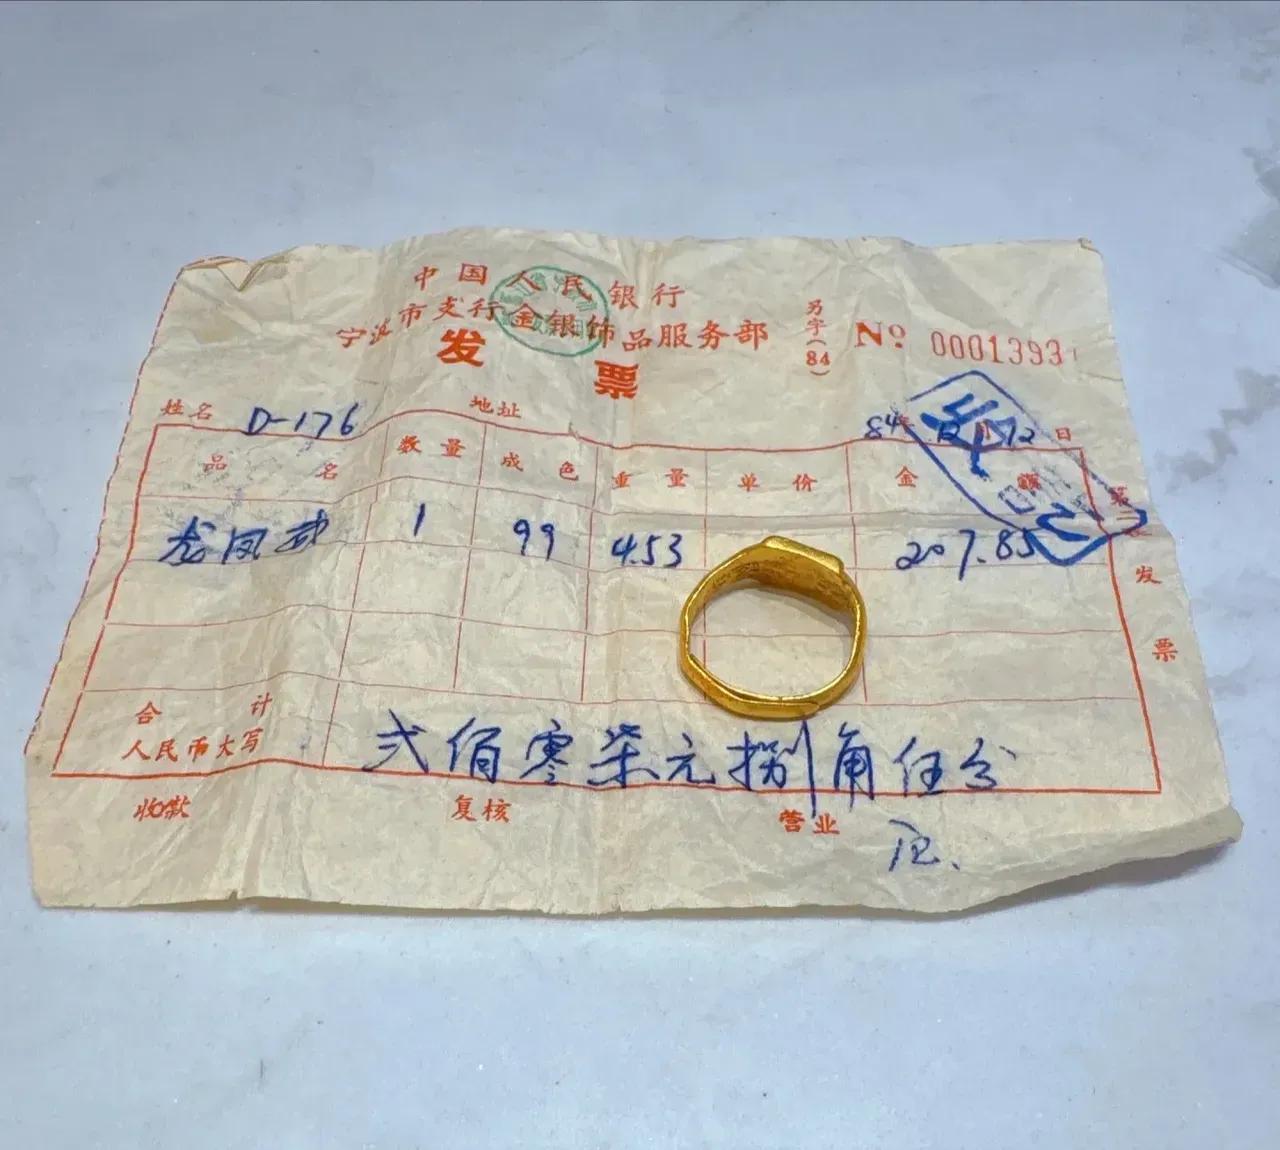 中国人民银行
宁波市支行金银饰品服务部
发票
另字(84)
No 0001393
姓名 D-176 地址 84年12月12日
品名 数量 成色 重量 单价 金额
龙凤戒 1 99 4.53 207.85
合计
人民币大写 弍佰零柒元捌角伍分
收款 复核 营业
发票